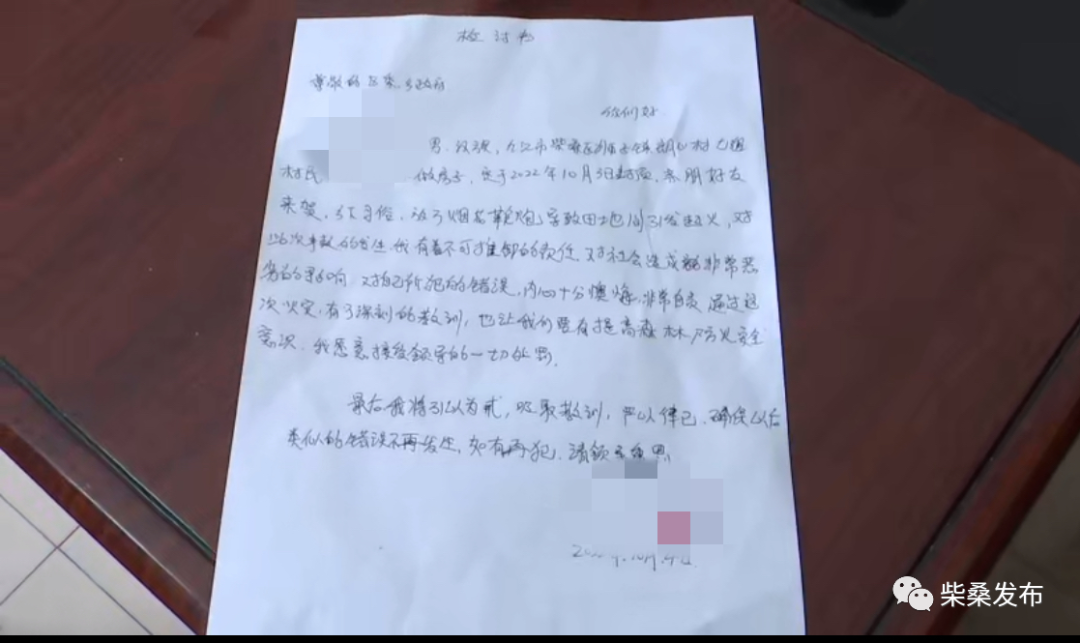 检讨书
尊敬的县委县政府
你们好
男,汉族,九江市柴桑区
村民 做房子,定于2022年10月3日封顶,亲朋好友
来贺,以习俗,放了烟花鞭炮,导致田地间引发起火,对
此次事故的发生我有着不可推卸的责任 对社会造成了非常恶
劣的影响 对自己所犯的错误,内心十分懊悔,非常自责 通过这
次火灾,有了深刻的教训,也让我们要有提高森林防火安全
意识,我愿意接受领导的一切处罚。
最后我将引以为戒,吸取教训,严以律己,确保以后
类似的错误不再发生,如有再犯,请领导重罚。
柴桑发布